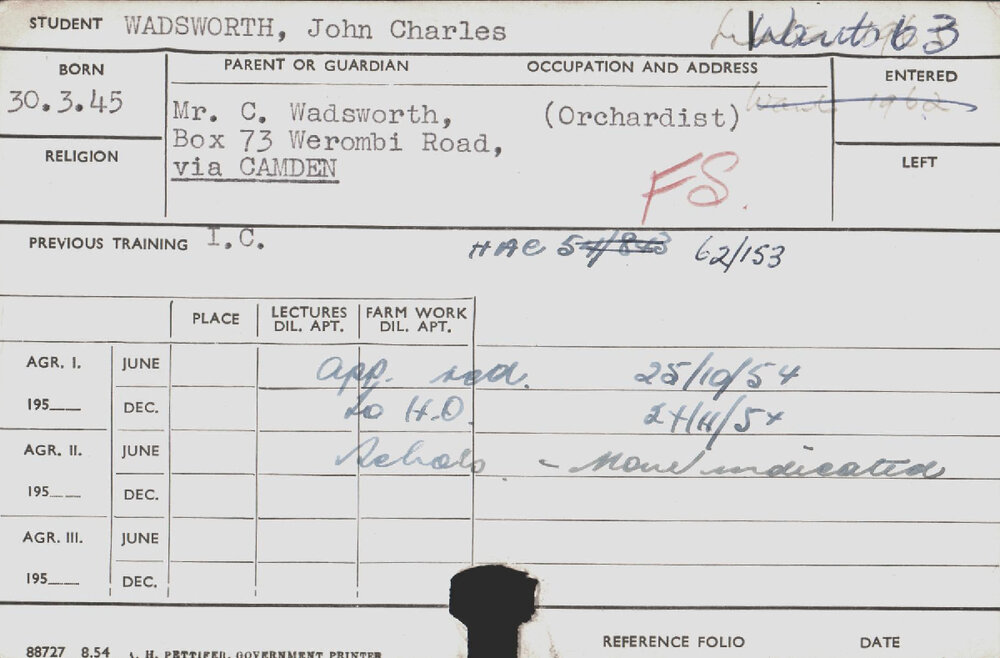 STUDENT WADSWORTH, John Charles
Wants 63
BORN
30.3.45
PARENT OR GUARDIAN OCCUPATION AND ADDRESS
Mr. C. Wadsworth, (Orchardist)
Box 73 Werombi Road,
via CAMDEN
FS.
ENTERED
Wants 1962
RELIGION
LEFT
PREVIOUS TRAINING I.C.
HAC 54/843 62/153
PLACE LECTURES DIL. APT. FARM WORK DIL. APT.
AGR. I. JUNE App. red. 25/10/54
195 DEC. to H.O. 24/11/54
AGR. II. JUNE Schols - None indicated
195 DEC.
AGR. III. JUNE
195 DEC.
REFERENCE FOLIO DATE
88727 8.54 A. H. PETTIFER, GOVERNMENT PRINTER